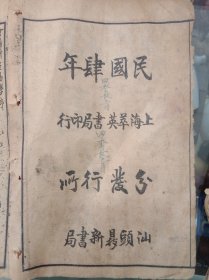 民國肆年
上海萃英書局印行
分發行所
汕頭鼎新書局